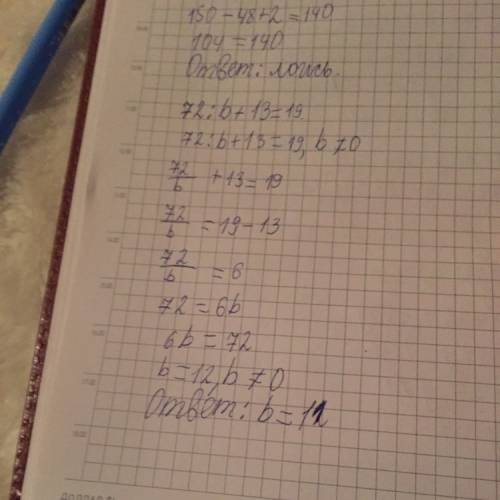 150-48+2=140
104=140
Ответ: ложь.
72:b+13=19
72:b+13=19, b≠0
72/b +13=19
72/b =19-13
72/b =6
72=6b
6b=72
b=12, b≠0
Ответ: b=12